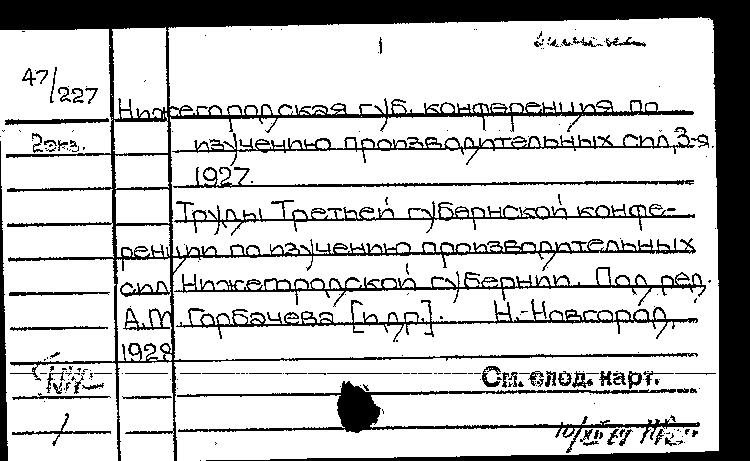 47/227
Нижегородская губ. конференция по
2экз.
изучению производительных сил, 3-я.
1927.
Труды Третьей губернской конфе-
ренции по изучению производительных
сил Нижегородской губернии. Под ред.
А.М. Горбачева [и др.]. Н.-Новгород,
1928
См. след. карт.